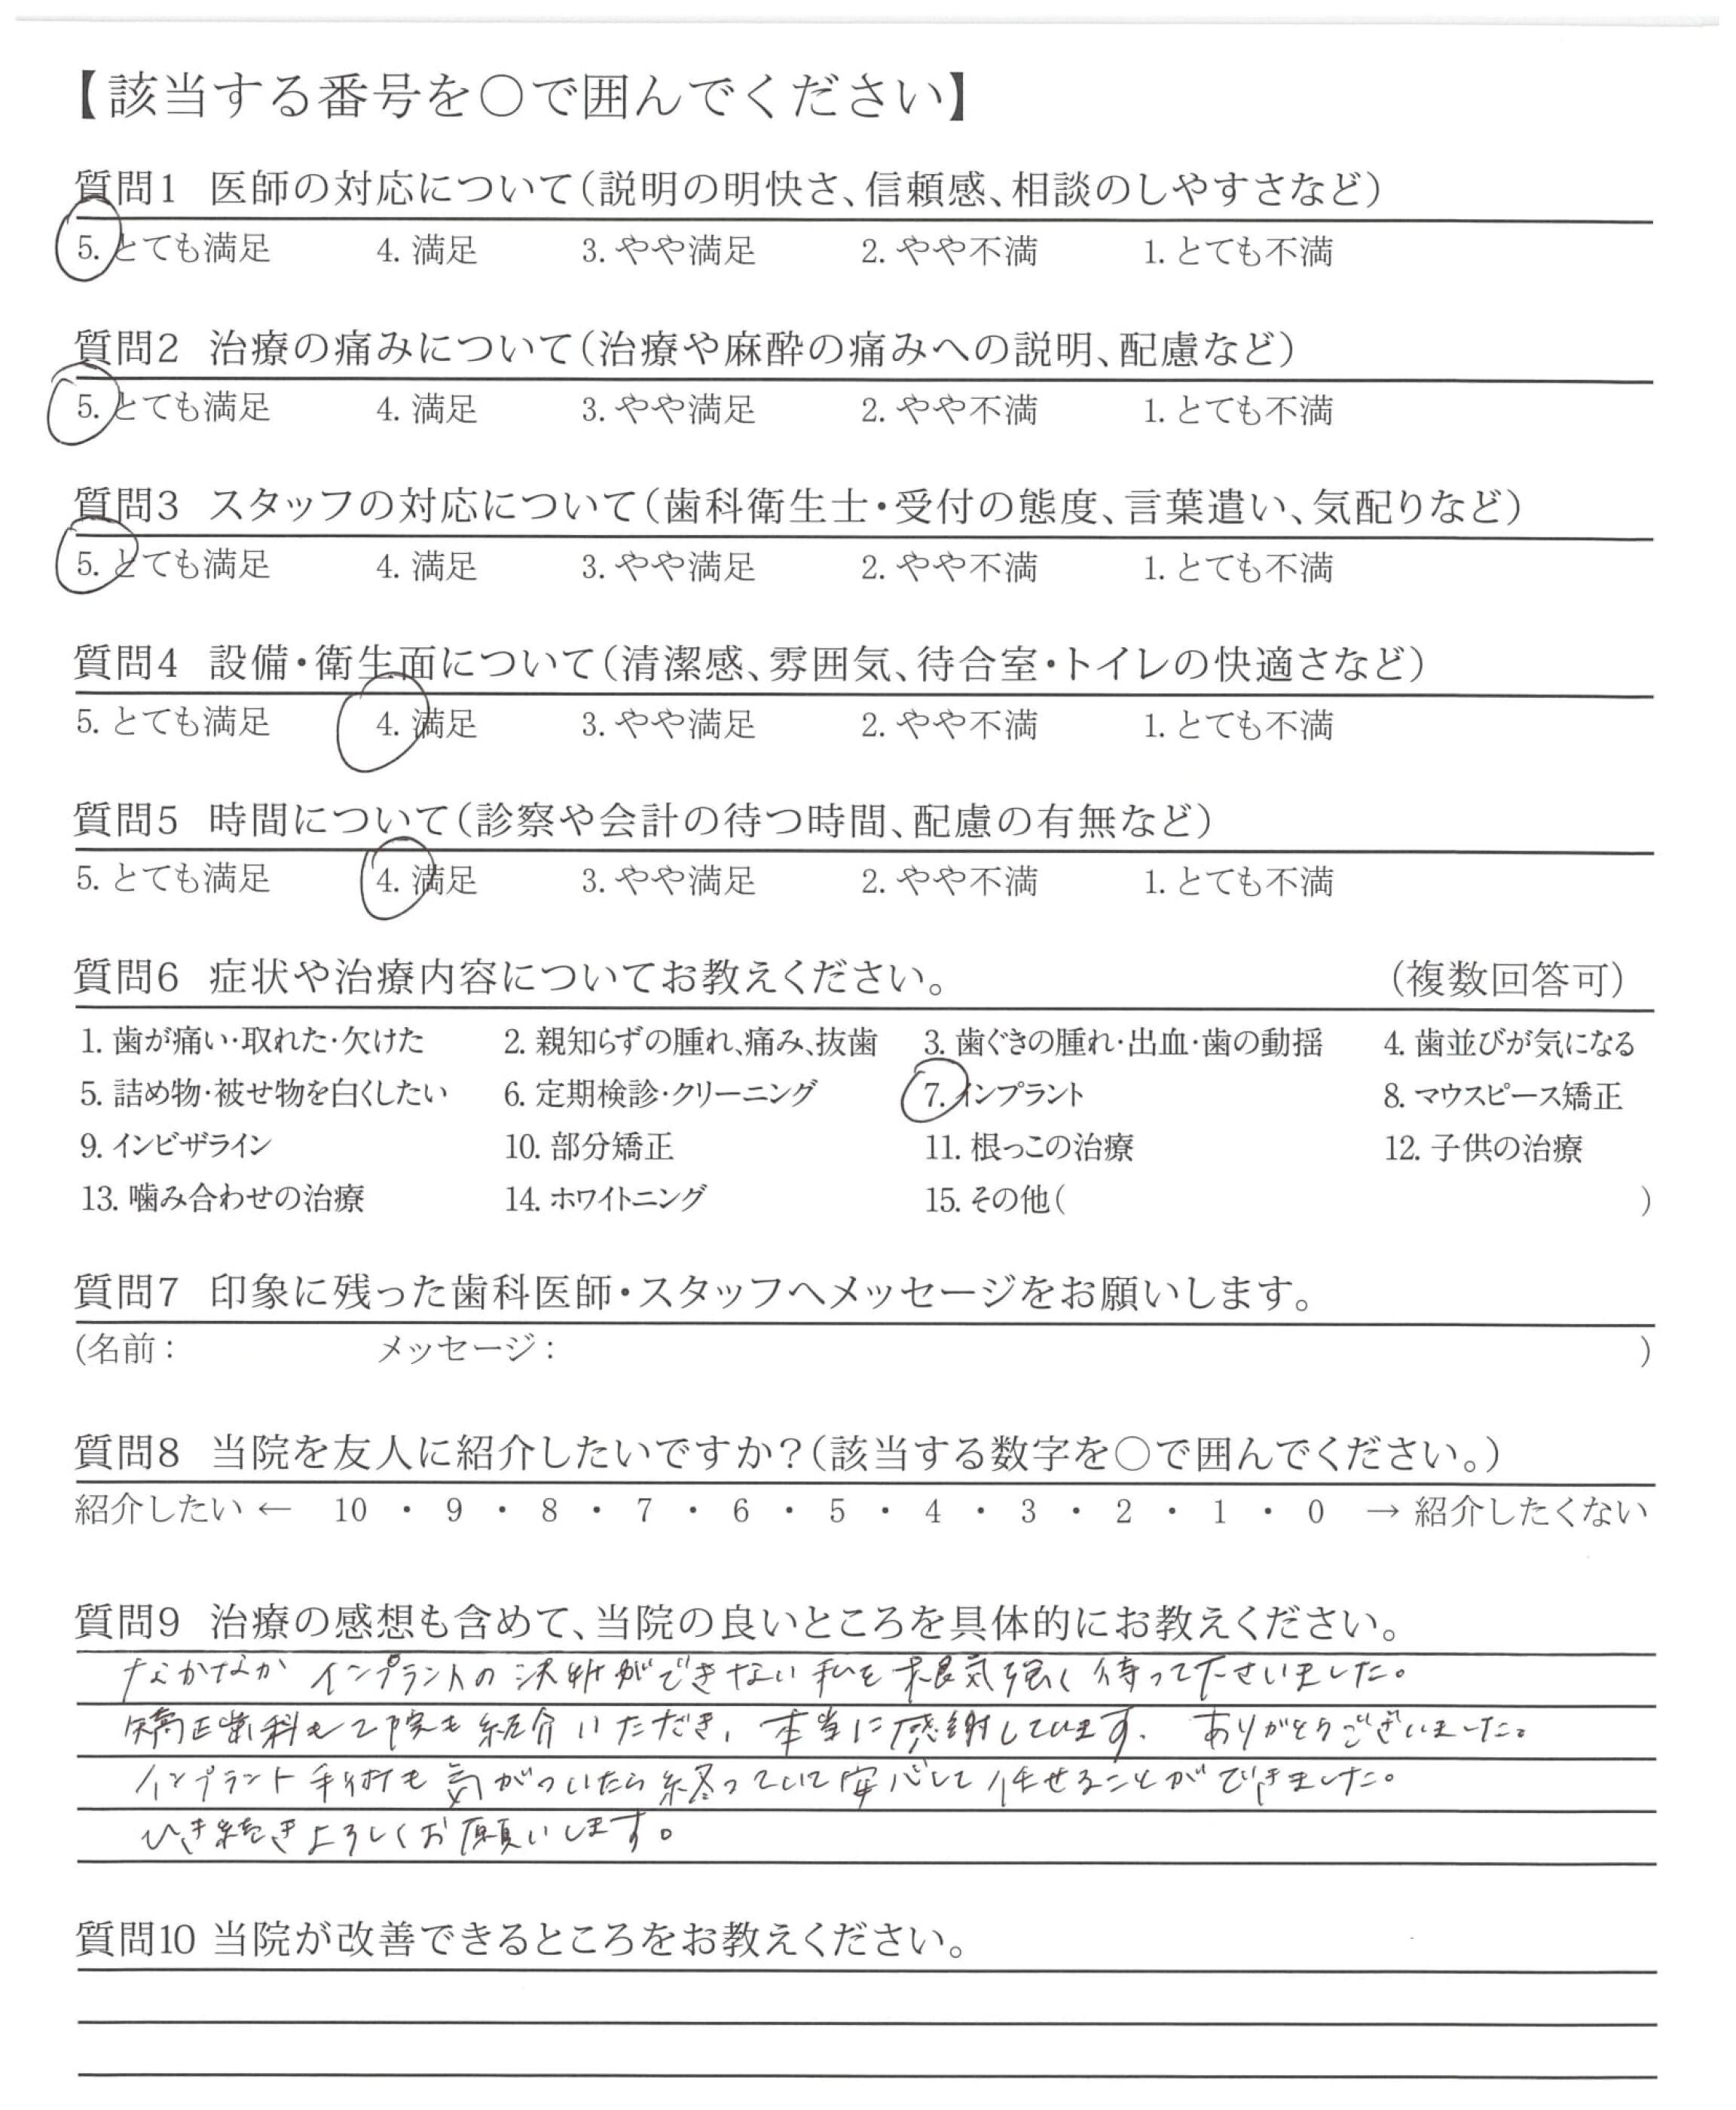 【該当する番号を○で囲んでください】
質問1 医師の対応について(説明の明快さ、信頼感、相談のしやすさなど)
5. とても満足 4. 満足 3. やや満足 2. やや不満 1. とても不満
質問2 治療の痛みについて(治療や麻酔の痛みへの説明、配慮など)
5. とても満足 4. 満足 3. やや満足 2. やや不満 1. とても不満
質問3 スタッフの対応について(歯科衛生士・受付の態度、言葉遣い、気配りなど)
5. とても満足 4. 満足 3. やや満足 2. やや不満 1. とても不満
質問4 設備・衛生面について(清潔感、雰囲気、待合室・トイレの快適さなど)
5. とても満足 4. 満足 3. やや満足 2. やや不満 1. とても不満
質問5 時間について(診察や会計の待つ時間、配慮の有無など)
5. とても満足 4. 満足 3. やや満足 2. やや不満 1. とても不満
質問6 症状や治療内容についてお教えください。 (複数回答可)
1. 歯が痛い・取れた・欠けた 2. 親知らずの腫れ、痛み、抜歯 3. 歯ぐきの腫れ・出血・歯の動揺 4. 歯並びが気になる
5. 詰め物・被せ物を白くしたい 6. 定期検診・クリーニング 7. インプラント 8. マウスピース矯正
9. インビザライン 10. 部分矯正 11. 根っこの治療 12. 子供の治療
13. 噛み合わせの治療 14. ホワイトニング 15. その他( )
質問7 印象に残った歯科医師・スタッフへメッセージをお願いします。
(名前: メッセージ: )
質問8 当院を友人に紹介したいですか?(該当する数字を○で囲んでください。)
紹介したい ← 10 ・ 9 ・ 8 ・ 7 ・ 6 ・ 5 ・ 4 ・ 3 ・ 2 ・ 1 ・ 0 → 紹介したくない
質問9 治療の感想も含めて、当院の良いところを具体的にお教えください。
なかなか インプラントの決断ができない私を根気強く待って下さいました。
矯正歯科も 院も紹介いただき、本当に感謝しています。ありがとうございました。
インプラント手術も気がついたら終っていて安心して任せることができました。
ひき続きよろしくお願いします。
質問10 当院が改善できるところをお教えください。